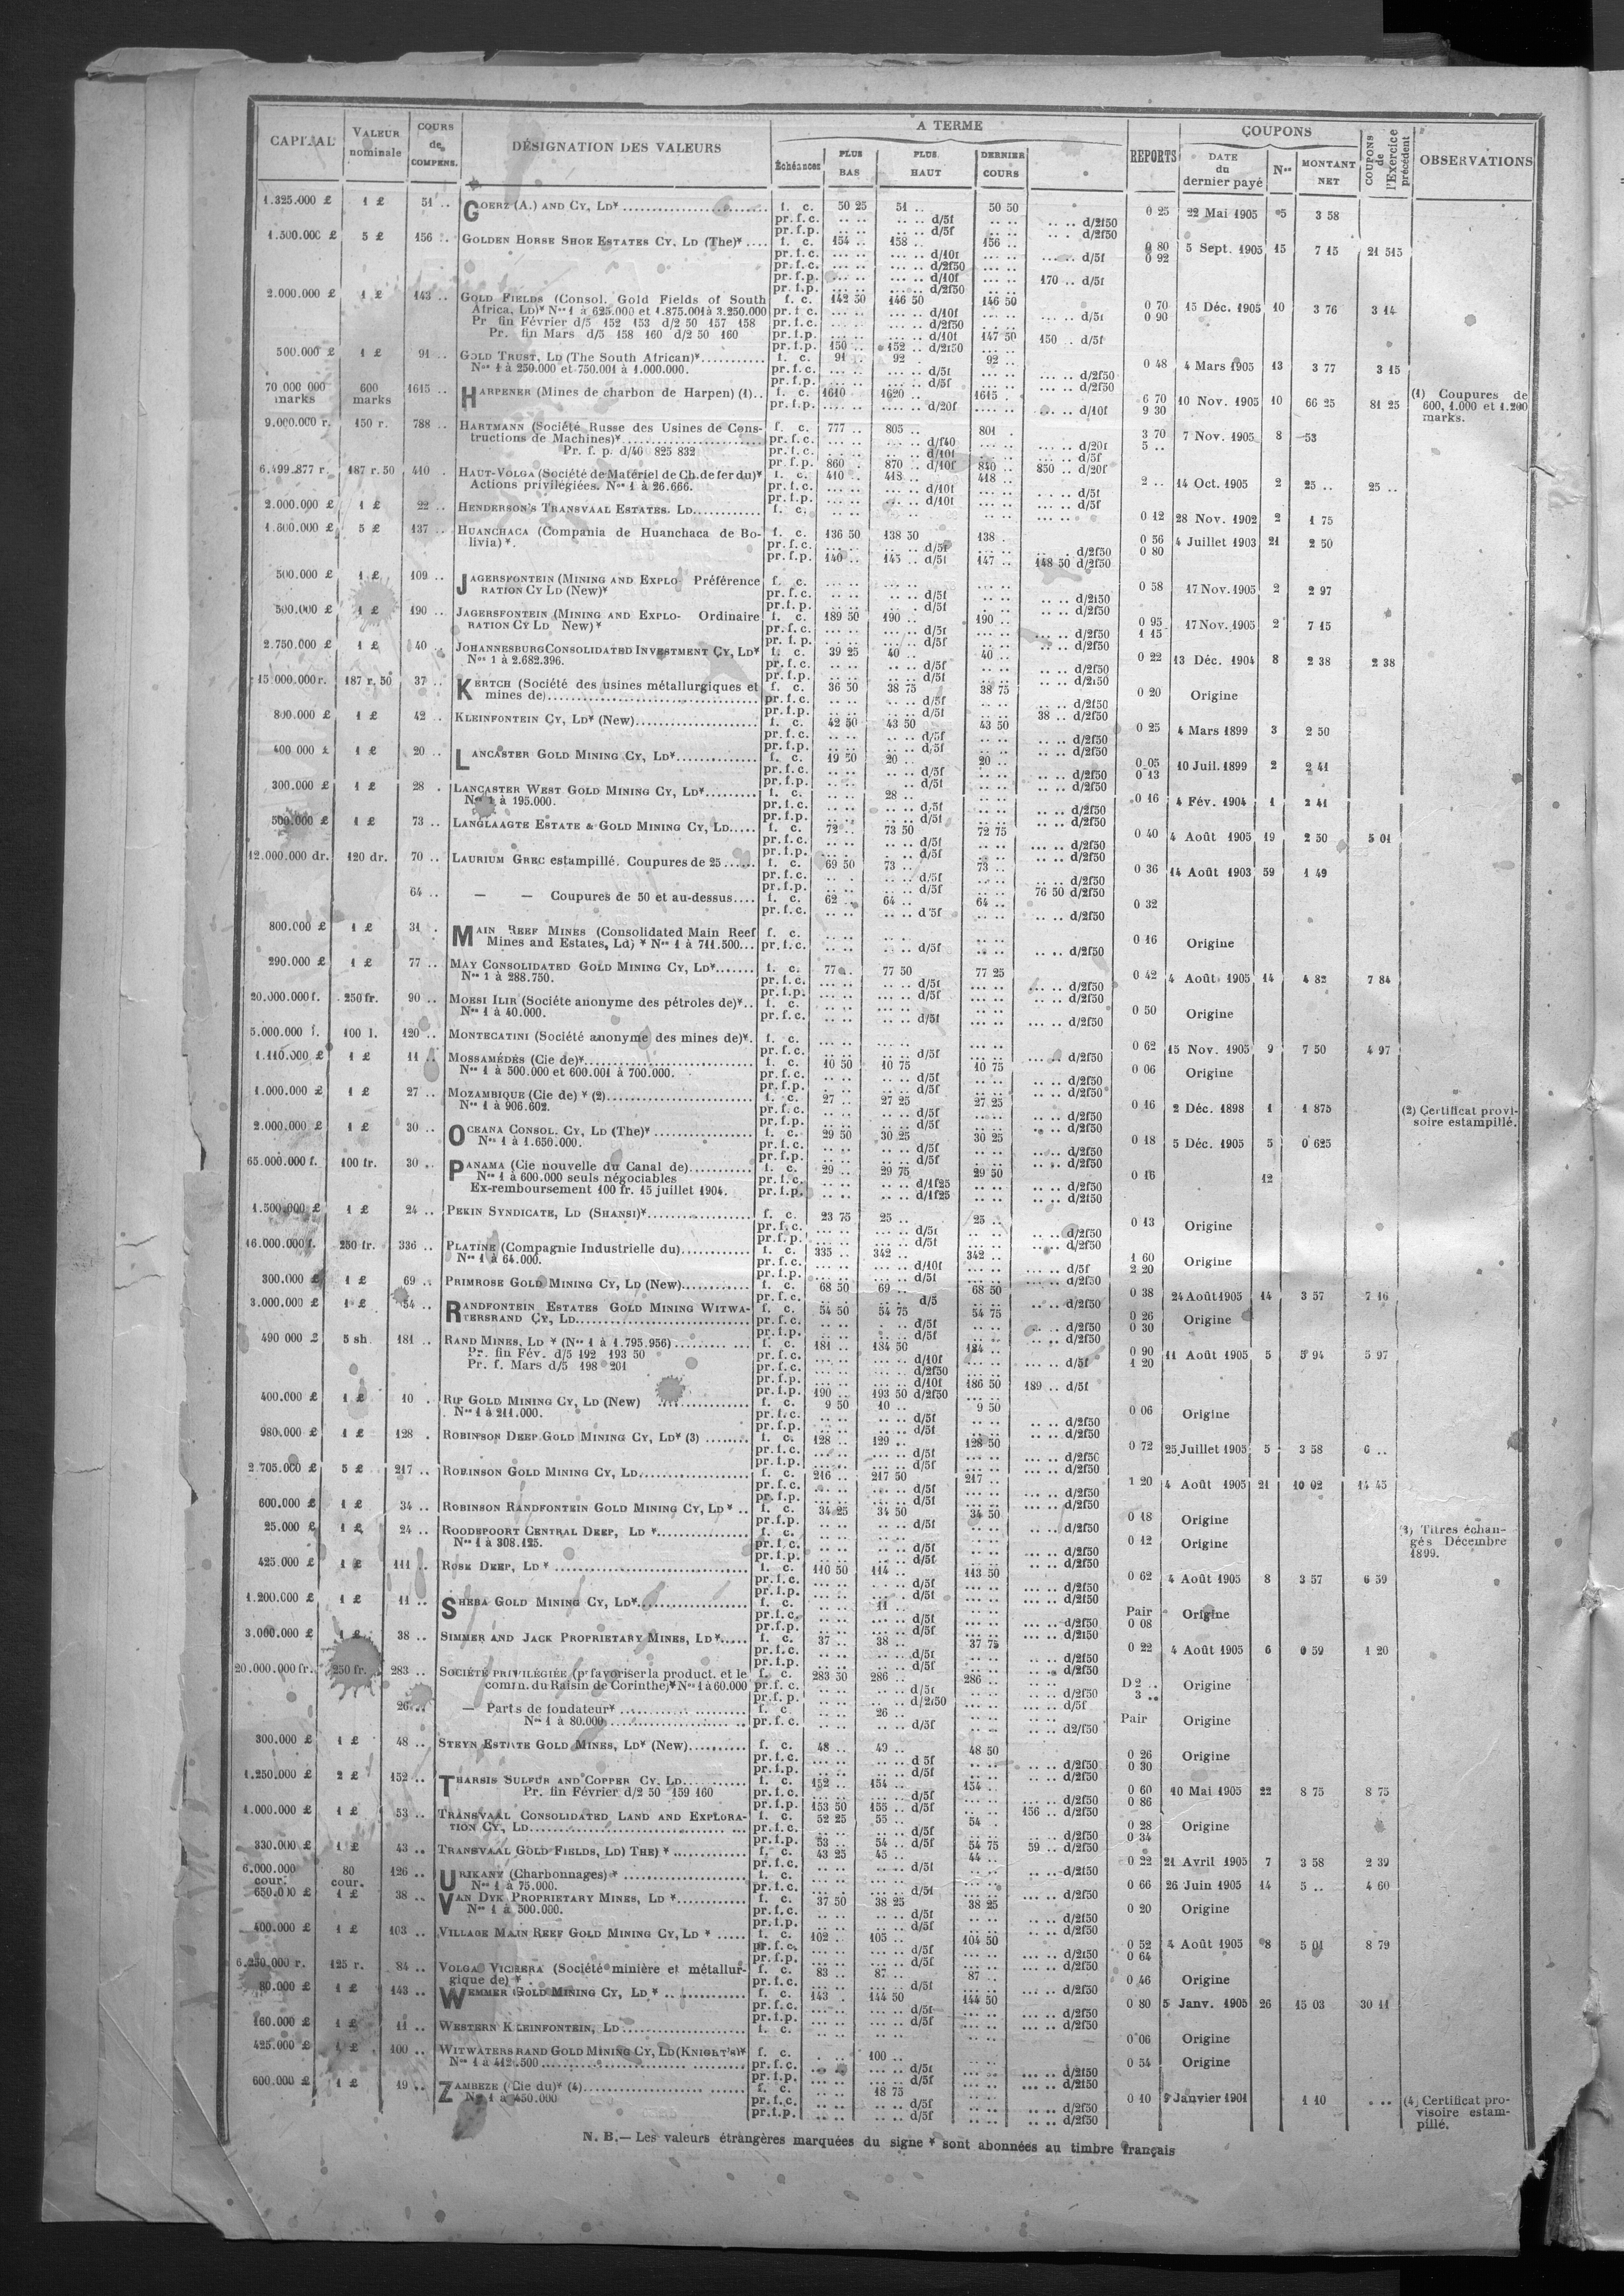 CAPITAL VALEUR nominale COURS de COMPENS. DÉSIGNATION DES VALEURS A TERME Échéances PLUS BAS PLUS HAUT DERNIER COURS REPORTS COUPONS DATE du dernier payé Nos MONTANT NET COUPONS de l'Exercice précédent OBSERVATIONS
1.325.000 £ 1 £ 51 .. GOERZ (A.) AND CY, LD* f. c. 50 25 51 .. 50 50 0 25 22 Mai 1905 5 3 58
pr. f. c. d/5f d/2f50
pr. f. p. d/5f d/2f50
1.500.000 £ 5 £ 156 .. GOLDEN HORSE SHOE ESTATES CY, LD (The)* f. c. 154 .. 158 .. 156 .. 0 80 0 92 5 Sept. 1905 15 7 15 21 515
pr. f. c. d/10f d/5f
pr. f. c. d/2f50
pr. f. p. d/10f 170 .. d/5f
pr. f. p. d/2f50
2.000.000 £ 1 £ 143 .. GOLD FIELDS (Consol. Gold Fields of South f. c. 142 50 146 50 146 50 0 70 0 90 15 Déc. 1905 10 3 76 3 14
Africa, LD)* Nos 1 à 625.000 et 1.875.001 à 3.250.000 pr. f. c. d/10f d/5f
Pr fin Février d/5 152 153 d/2 50 157 158 pr. f. c. d/2f50
Pr. fin Mars d/5 158 160 d/2 50 160 pr. f. p. d/10f 147 50 150 .. d/5f
pr. f. p. 150 .. 152 .. d/2f50
500.000 £ 1 £ 91 .. GOLD TRUST, LD (The South African)* f. c. 91 . 92 . 92 .. 0 48 4 Mars 1905 13 3 77 3 15
Nos 1 à 250.000 et 750.001 à 1.000.000. pr. f. c. d/5f d/2f50
pr. f. p. d/5f d/2f50
70 000 000 marks 600 marks 1615 .. HARPENER (Mines de charbon de Harpen) (1).. f. c. 1610 1620 .. 1615 . 6 70 9 30 10 Nov. 1905 10 66 25 81 25 (1) Coupures de 600, 1.000 et 1.200 marks.
pr. f. p. d/20f d/10f
9.000.000 r. 150 r. 788 .. HARTMANN (Société Russe des Usines de Cons- f. c. 777 .. 805 .. 801 . 3 70 5 .. 7 Nov. 1905 8 53
tructions de Machines)* pr. f. c. d/f40 d/20f
Pr. f. p. d/40 825 832 pr. f. c. d/10f d/5f
pr. f. p. 860 . 870 .. d/10f 840 .. 850 .. d/20f
6.499.877 r. 187 r. 50 410 . HAUT-VOLGA (Société de Matériel de Ch. de fer du)* f. c. 410 .. 418 .. 418 .. 2 .. 14 Oct. 1905 2 25 .. 25 ..
Actions privilégiées. Nos 1 à 26.666. pr. f. c. d/10f d/5f
pr. f. p. d/10f d/5f
2.000.000 £ 1 £ 22 .. HENDERSON'S TRANSVAAL ESTATES. LD f. c. 0 12 28 Nov. 1902 2 1 75
1.600.000 £ 5 £ 137 .. HUANCHACA (Compania de Huanchaca de Bo- f. c. 136 50 138 50 138 . 0 56 0 80 4 Juillet 1903 21 2 50
livia) *. pr. f. c. d/5f d/2f50
pr. f. p. 140 .. 145 .. d/5f 147 .. 148 50 d/2f50
500.000 £ 1 £ 109 .. JAGERSFONTEIN (MINING AND EXPLO- Préférence f. c. 0 58 17 Nov. 1905 2 2 97
RATION CY LD (New)* pr. f. c. d/5f d/2f50
pr. f. p. d/5f d/2f50
500.000 £ 1 £ 190 .. JAGERSFONTEIN (MINING AND EXPLO- Ordinaire f. c. 189 50 190 .. 190 .. 0 95 1 15 17 Nov. 1905 2 7 15
RATION CY LD New) * pr. f. c. d/5f d/2f50
pr. f. p. d/5f d/2f50
2.750.000 £ 1 £ 40 .. JOHANNESBURG CONSOLIDATED INVESTMENT CY, LD* f. c. 39 25 40 .. 40 .. 0 22 13 Déc. 1904 8 2 38 2 38
Nos 1 à 2.682.396. pr. f. c. d/5f d/2f50
pr. f. p. d/5f d/2f50
15 000.000 r. 187 r. 50 37 .. KERTCH (Société des usines métallurgiques et f. c. 36 50 38 75 38 75 0 20 Origine
mines de) pr. f. c. d/5f d/2f50
pr. f. p. d/5f 38 .. d/2f50
800.000 £ 1 £ 42 .. KLEINFONTEIN CY, LD* (New) f. c. 42 50 43 50 43 50 0 25 4 Mars 1899 3 2 50
pr. f. c. d/5f d/2f50
pr. f. p. d/5f d/2f50
400 000 £ 1 £ 20 .. LANCASTER GOLD MINING CY, LD* f. c. 19 50 20 .. 20 .. 0 05 0 13 10 Juil. 1899 2 2 41
pr. f. c. d/5f d/2f50
pr. f. p. d/5f d/2f50
300.000 £ 1 £ 28 . LANCASTER WEST GOLD MINING CY, LD* f. c. 28 .. 0 16 4 Fév. 1904 1 2 41
Nos 1 à 195.000. pr. f. c. d/5f d/2f50
pr. f. p. d/5f d/2f50
500.000 £ 1 £ 73 .. LANGLAAGTE ESTATE & GOLD MINING CY, LD f. c. 72 .. 73 50 72 75 0 40 4 Août 1905 19 2 50 5 01
pr. f. c. d/5f d/2f50
pr. f. p. d/5f d/2f50
12.000.000 dr. 120 dr. 70 .. LAURIUM GREC estampillé. Coupures de 25 f. c. 69 50 73 .. 73 .. 0 36 14 Août 1903 59 1 49
pr. f. c. d/5f d/2f50
pr. f. p. d/5f 76 50 d/2f50
64 .. — — Coupures de 50 et au-dessus f. c. 62 .. 64 .. 64 .. 0 32
pr. f. c. d 5f d/2f50
800.000 £ 1 £ 31 . MAIN REEF MINES (Consolidated Main Reef f. c. 0 16 Origine
Mines and Estates, Ld) * Nos 1 à 711.500 pr. f. c. d/5f d/2f50
290.000 £ 1 £ 77 .. MAY CONSOLIDATED GOLD MINING CY, LD* f. c. 77 .. 77 50 77 25 0 42 4 Août 1905 14 4 82 7 84
Nos 1 à 288.750. pr. f. c. d/5f d/2f50
pr. f. p. d/5f d/2f50
20.000.000 f. 250 fr. 90 .. MOESI ILIR (Sociéte anonyme des pétroles de)* f. c. 0 50 Origine
Nos 1 à 40.000. pr. f. c. d/5f d/2f50
5.000.000 l. 100 l. 120 .. MONTECATINI (Société anonyme des mines de)*. f. c. 0 62 15 Nov. 1905 9 7 50 4 97
pr. f. c. d/5f d/2f50
1.110.000 £ 1 £ 11 .. MOSSAMÉDÈS (Cie de)* f. c. 10 50 10 75 10 75 0 06 Origine
Nos 1 à 500.000 et 600.001 à 700.000. pr. f. c. d/5f d/2f50
pr. f. p. d/5f d/2f50
1.000.000 £ 1 £ 27 .. MOZAMBIQUE (Cie de) * (2) f. c. 27 .. 27 25 27 25 0 16 2 Déc. 1898 1 1 875 (2) Certificat provi-
Nos 1 à 906.602. pr. f. c. d/5f d/2f50 soire estampillé.
pr. f. p. d/5f d/2f50
2.000.000 £ 1 £ 30 .. OCEANA CONSOL. CY, LD (The)* f. c. 29 50 30 25 30 25 0 18 5 Déc. 1905 5 0 625
Nos 1 à 1.650.000. pr. f. c. d/5f d/2f50
pr. f. p. d/5f d/2f50
65.000.000 f. 100 fr. 30 .. PANAMA (Cie nouvelle du Canal de) f. c. 29 .. 29 75 29 50 0 16 12
Nos 1 à 600.000 seuls négociables pr. f. c. d/1f25 d/2f50
Ex-remboursement 100 fr. 15 juillet 1904. pr. f. p. d/1f25 d/2f50
1.500.000 £ 1 £ 24 .. PEKIN SYNDICATE, LD (SHANSI)* f. c. 23 75 25 .. 25 .. 0 13 Origine
pr. f. c. d/5f d/2f50
pr. f. p. d/5f d/2f50
16.000.000 f. 250 fr. 336 .. PLATINE (Compagnie Industrielle du) f. c. 335 .. 342 .. 342 .. 1 60 2 20 Origine
Nos 1 à 64.000. pr. f. c. d/10f d/5f
pr. f. p. d/5f d/2f50
300.000 £ 1 £ 69 .. PRIMROSE GOLD MINING CY, LD (New) f. c. 68 50 69 .. 68 50 0 38 24 Août 1905 14 3 57 7 16
pr. f. c. d/5 d/2f50
3.000.000 £ 1 £ 54 .. RANDFONTEIN ESTATES GOLD MINING WITWA- f. c. 54 50 54 75 54 75 0 26 0 30 Origine
TERSRAND CY, LD pr. f. c. d/5f d/2f50
pr. f. p. d/5f d/2f50
490 000 £ 5 sh 181 .. RAND MINES, LD * (Nos 1 à 1.795.956) f. c. 181 .. 184 50 184 .. 0 90 1 20 11 Août 1905 5 5 94 5 97
Pr. fin Fév. d/5 192 193 50 pr. f. c. d/10f d/5f
Pr. f. Mars d/5 198 201 pr. f. c. d/2f50
pr. f. p. d/10f 186 50 189 .. d/5f
pr. f. p. 190 .. 193 50 d/2f50
400.000 £ 1 £ 10 . RIP GOLD MINING CY, LD (New) f. c. 9 50 10 .. 9 50 0 06 Origine
Nos 1 à 211.000. pr. f. c. d/5f d/2f50
pr. f. p. d/5f d/2f50
980.000 £ 1 £ 128 . ROBINSON DEEP GOLD MINING CY, LD* (3) f. c. 128 .. 129 .. 128 50 0 72 25 Juillet 1905 5 3 58 6 ..
pr. f. c. d/5f d/2f50
pr. f. p. d/5f d/2f50
2.705.000 £ 5 £ 217 .. ROBINSON GOLD MINING CY, LD f. c. 216 .. 217 50 217 .. 1 20 4 Août 1905 21 10 02 14 45
pr. f. c. d/5f d/2f50
pr. f. p. d/5f d/2f50
600.000 £ 1 £ 34 .. ROBINSON RANDFONTEIN GOLD MINING CY, LD * f. c. 34 25 34 50 34 50 0 18 Origine
pr. f. p. d/5f d/2f50
25.000 £ 1 £ 24 .. ROODEPOORT CENTRAL DEEP, LD * f. c. 0 12 Origine (3) Titres échan-
Nos 1 à 308.125. pr. f. c. d/5f d/2f50 gés Décembre
pr. f. p. d/5f d/2f50 1899.
425.000 £ 1 £ 111 .. ROSE DEEP, LD * f. c. 110 50 114 .. 113 50 0 62 4 Août 1905 8 3 57 6 59
pr. f. c. d/5f d/2f50
pr. f. p. d/5f d/2f50
1.200.000 £ 1 £ 11 .. SHEBA GOLD MINING CY, LD* f. c. 11 .. Pair 0 08 Origine
pr. f. c. d/5f d/2f50
pr. f. p. d/5f d/2f50
3.000.000 £ 1 £ 38 .. SIMMER AND JACK PROPRIETARY MINES, LD* f. c. 37 .. 38 .. 37 75 0 22 4 Août 1905 6 0 59 1 20
pr. f. c. d/5f d/2f50
pr. f. p. d/5f d/2f50
20.000.000 fr. 250 fr. 283 .. SOCIÉTÉ PRIVILÉGIÉE (pr favoriser la product. et le f. c. 283 50 286 .. 286 .. D 2 .. 3 .. Origine
comm. du Raisin de Corinthe)* Nos 1 à 60.000 pr. f. c. d/5f d/2f50
pr. f. p. d/2f50 d/5f
26 .. — Parts de fondateur* f. c. 26 .. Pair Origine
Nos 1 à 80.000 pr. f. c. d/5f d2/f50
300.000 £ 1 £ 48 .. STEYN ESTATE GOLD MINES, LD* (New) f. c. 48 .. 49 .. 48 50 0 26 0 30 Origine
pr. f. c. d 5f d/2f50
pr. f. p. d/5f d/2f50
1.250.000 £ 2 £ 152 .. THARSIS SULFUR AND COPPER CY, LD f. c. 152 .. 154 .. 154 .. 0 60 0 86 10 Mai 1905 22 8 75 8 75
Pr. fin Février d/2 50 159 160 pr. f. c. d/5f d/2f50
pr. f. p. 153 50 155 .. d/5f 156 .. d/2f50
1.000.000 £ 1 £ 53 .. TRANSVAAL CONSOLIDATED LAND AND EXPLORA- f. c. 52 25 55 .. 54 . 0 28 0 34 Origine
TION CY, LD pr. f. c. d/5f d/2f50
pr. f. p. 53 .. 54 .. d/5f 54 75 59 .. d/2f50
330.000 £ 1 £ 43 .. TRANSVAAL GOLD FIELDS, LD) THE) * f. c. 43 25 45 .. 44 .. 0 22 21 Avril 1905 7 3 58 2 39
pr. f. c. d/5f d/2f50
6.000.000 cour. 80 cour. 126 .. URIKANY (Charbonnages) * f. c. 0 66 26 Juin 1905 14 5 .. 4 60
Nos 1 à 75.000. pr. f. c. d/5f d/2f50
650.000 £ 1 £ 38 .. VAN DYK PROPRIETARY MINES, LD * f. c. 37 50 38 25 38 25 0 20 Origine
Nos 1 à 500.000. pr. f. c. d/5f d/2f50
pr. f. p. d/5f d/2f50
400.000 £ 1 £ 103 .. VILLAGE MAIN REEF GOLD MINING CY, LD * f. c. 102 .. 105 .. 104 50 0 52 0 64 4 Août 1905 8 5 01 8 79
pr. f. c. d/5f d/2f50
pr. f. p. d/5f d/2f50
6.250.000 r. 125 r. 84 .. VOLGA VICHERA (Société minière et métallur- f. c. 83 .. 87 .. 87 .. 0 46 Origine
gique de) * pr. f. c. d/5f d/2f50
80.000 £ 1 £ 143 .. WEMMER GOLD MINING CY, LD * f. c. 143 . 144 50 144 50 0 80 5 Janv. 1905 26 15 03 30 11
pr. f. c. d/5f d/2f50
pr. f. p. d/5f d/2f50
160.000 £ 1 £ 11 .. WESTERN KLEINFONTEIN, LD f. c. 0 06 Origine
425.000 £ 1 £ 100 .. WITWATERSRAND GOLD MINING CY, LD (KNIGHT'S)* f. c. 100 .. 0 54 Origine
Nos 1 à 412.500 pr. f. c. d/5f d/2f50
pr. f. p. d/5f d/2f50
600.000 £ 1 £ 19 .. ZAMBEZE (Cie du)* (4) f. c. 18 75 0 10 9 Janvier 1901 1 10 (4) Certificat pro-
Nos 1 à 450.000 pr. f. c. d/5f d/2f50 visoire estam-
pr. f. p. d/5f d/2f50 pillé.
N. B.— Les valeurs étrangères marquées du signe * sont abonnées au timbre français